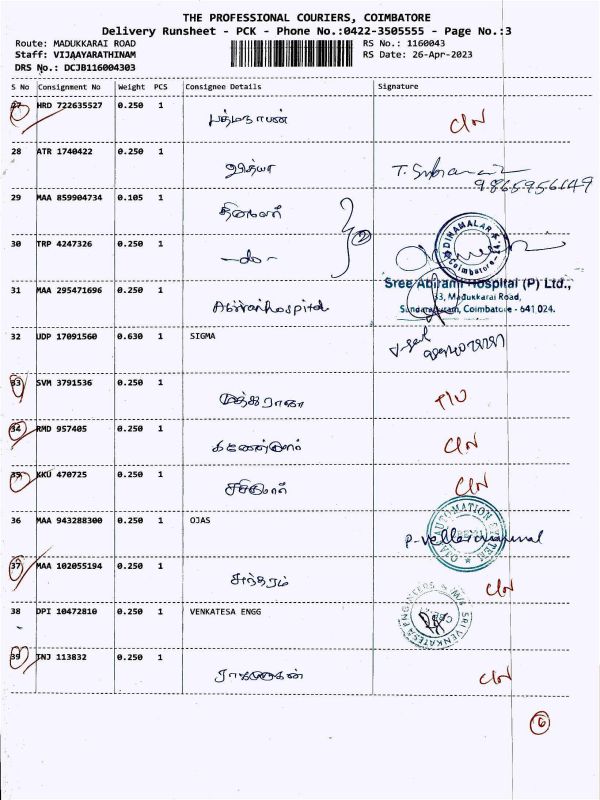 THE PROFESSIONAL COURIERS, COIMBATORE
Delivery Runsheet - PCK - Phone No.:0422-3505555 - Page No.:3
Route: MADUKKARAI ROAD RS No.: 1160043
Staff: VIJAAYARATHINAM RS Date: 26-Apr-2023
DRS No.: DCJB116004303
S No Consignment No Weight PCS Consignee Details Signature
37 HRD 722635527 0.250 1
பத்மநாபன் C/N
28 ATR 1740422 0.250 1
9865956149
29 MAA 859904734 0.105 1
தினமலர்
30 TRP 4247326 0.250 1
-do- 2
DINAMALAR
Coimbatore
31 MAA 295471696 0.250 1
Abirami hospital
Sree Abirami Hospital (P) Ltd.,
33, Madukkarai Road,
Sundarapuram, Coimbatore - 641 024.
32 UDP 17091560 0.630 1 SIGMA
33 SVM 3791536 0.250 1
34 RMD 957405 0.250 1
C/N
35 KKU 470725 0.250 1
சசிகுமார் C/N
36 MAA 943288300 0.250 1 OJAS
AUTOMATION SYSTEM
37 MAA 102055194 0.250 1
சுந்தரம் C/N
38 DPI 10472810 0.250 1 VENKATESA ENGG
SRI VENKATESA ENGINEERS
39 TNJ 113832 0.250 1
C/N
6